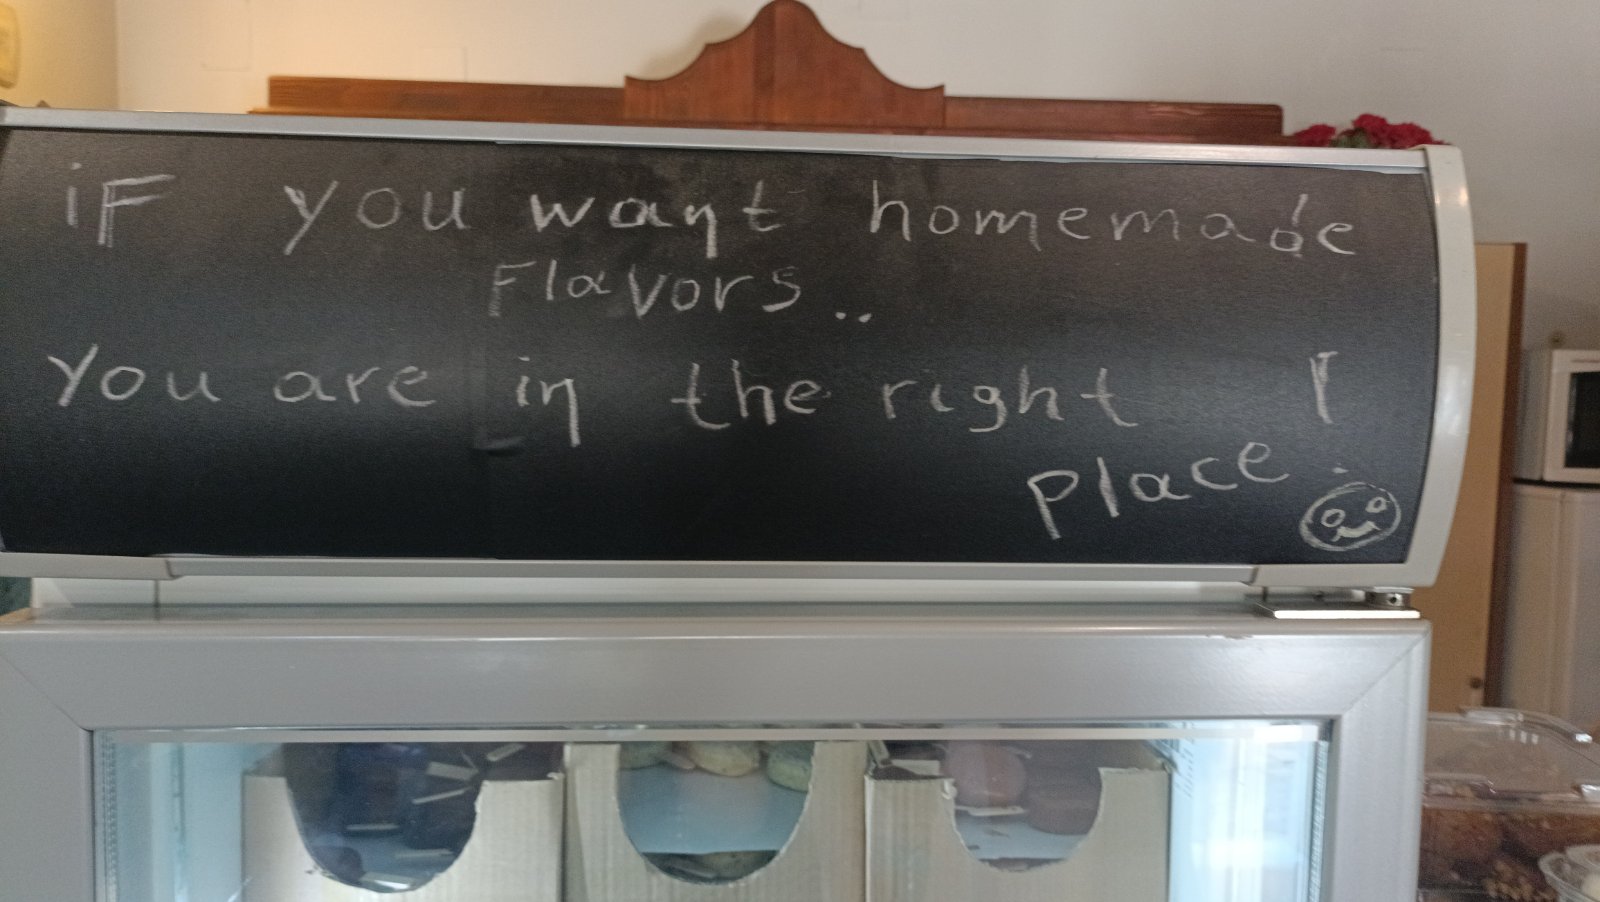 iF you want homemade
Flavors..
You are in the right
place!